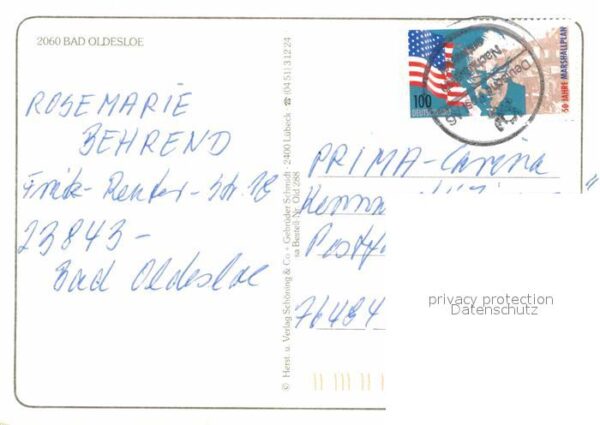 2060 BAD OLDESLOE
ROSEMARIE
BEHREND
Fritz-Reuter-Str. 18
23843-
Bad Oldesloe
© Herst. u. Verlag Schöning & Co · Gebrüder Schmidt · 2400 Lübeck ☎ (04 51) 3 12 24
Bestell-Nr. Old 288
100
DEUTSCHLAND
50 JAHRE MARSHALLPLAN
PRIMA-Carina
Postf
76484
privacy protection
Datenschutz